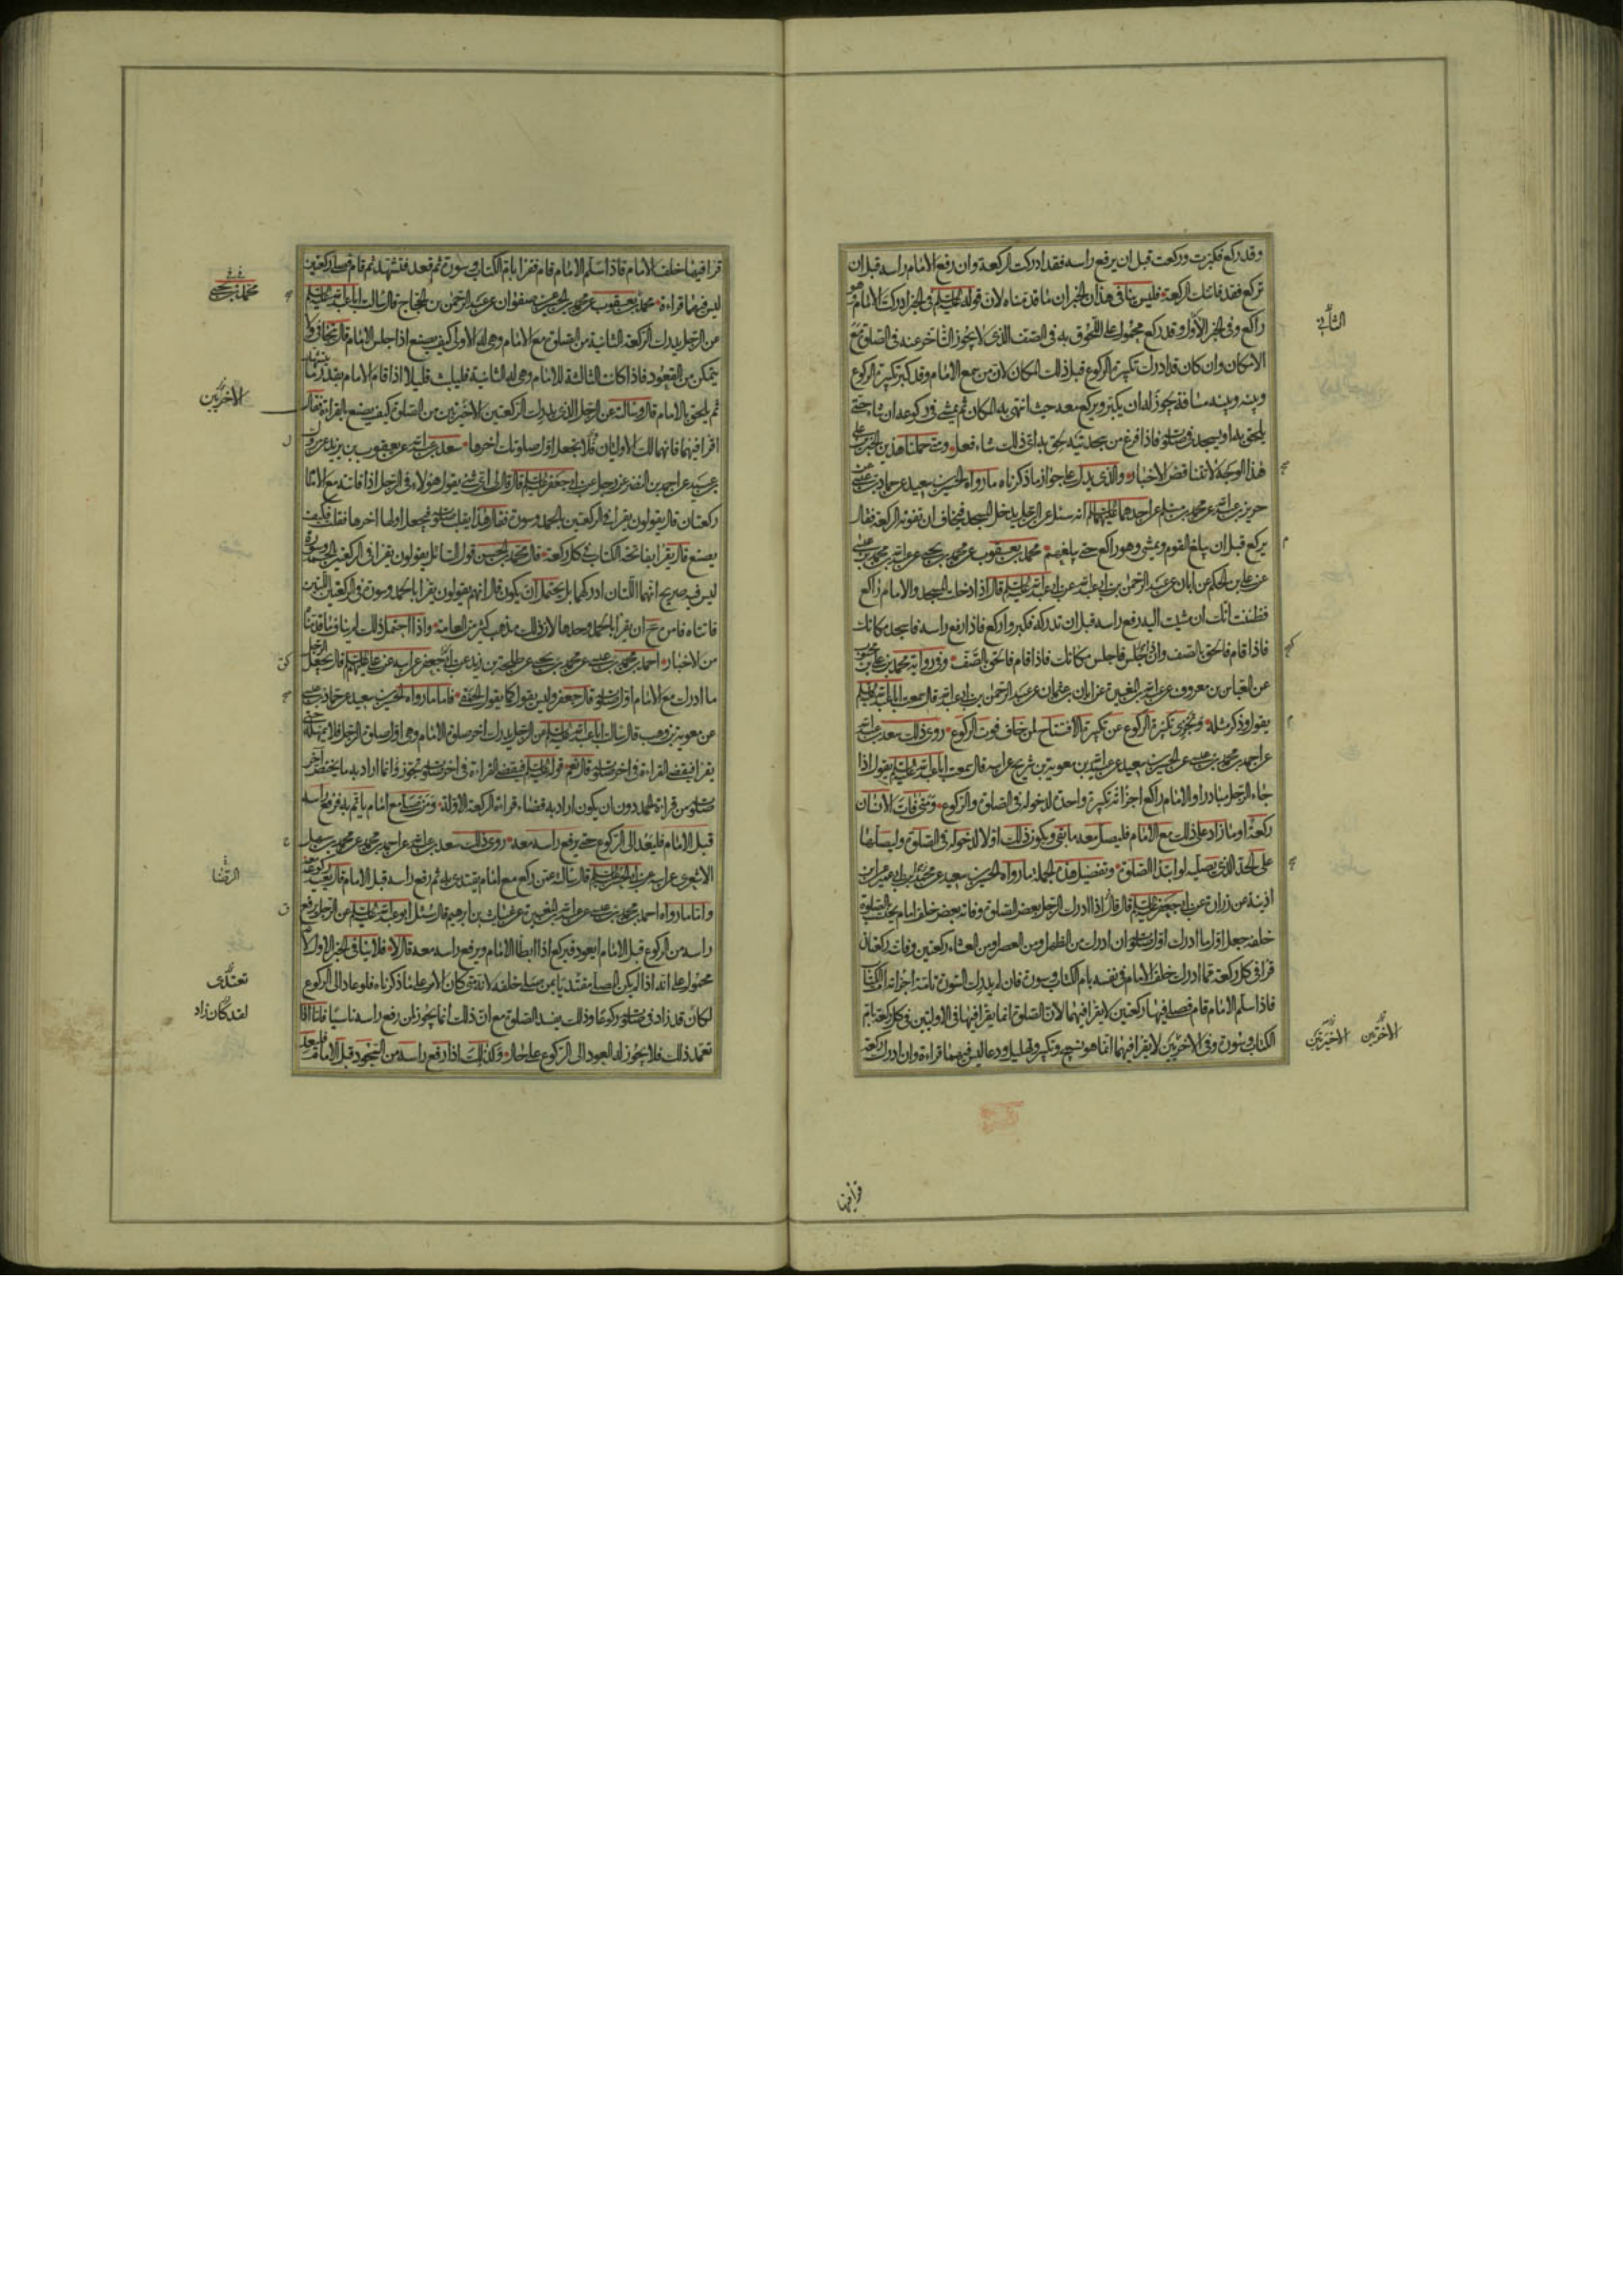 وقد ركع فكبرت وركعت قبل ان يرفع راسه فقد ادركت الركعة وان رفع الامام راسه قبل ان
تركع فقد فاتتك الركعة فليس ينافى هذان الخبران ما قدمناه لان قوله عليه السلام فى الخبر ادركت الامام وهو
راكع وفى الخبر الاول وقد ركع محمول على اللحوق به فى الصف الذى لا يجوز التأخر عنه فى الصلوة مع
الامكان وان كان قد ادرك تكبيرة الركوع قبل ذلك المكان لان من سمع الامام وقد كبر تكبيرة الركوع
وبينه وبينه مسافة يجوز له ان يكبر ويركع معه حيث انتهى به المكان ثم يمشى فى ركوعه ان شاء حتى
يلحق به او يسجد فى صلوته فاذا فرغ من سجدتيه لحق به اى ذلك شاء فعل ومتى حملنا هذين الخبرين على
هذا الوجه لا تتناقض الاخبار والذى يدل على جواز ما ذكرناه ما رواه الحسين بن سعيد عن حماد بن عيسى عن
حريز بن عبدالله عن محمد بن مسلم عن احدهما عليهما السلام انه سئل عن الرجل يدخل المسجد فيخاف ان تفوته الركعة فقال
يركع قبل ان يبلغ القوم ويمشى وهو راكع حتى يبلغهم محمد بن يعقوب عن محمد بن يحيى عن عبدالله بن محمد بن عيسى
عن على بن الحكم عن ابان عن عبد الرحمن بن ابى عبدالله عن ابى عبدالله عليه السلام قال اذا دخلت المسجد والامام راكع
فظننت انك ان مشيت اليه رفع راسه قبل ان تدركه فكبر واركع فاذا رفع راسه فاسجد مكانك
فاذا قام فالحق بالصف وان جلس فاجلس مكانك فاذا قام فالحق بالصف وفى رواية محمد بن على بن محبوب
عن العباس بن معروف عن عبدالله بن المغيرة عن ابان بن عثمان عن عبد الرحمن بن ابى عبدالله قال سمعت ابا عبدالله عليه السلام
يقول وذكر مثله وتجزى تكبيرة الركوع عن تكبيرة الافتتاح لمن خاف فوت الركوع روى ذلك سعد بن عبدالله
عن احمد بن محمد بن عيسى عن الحسين بن سعيد عن عبدالله بن معوية بن شريح عن ابيه قال سمعت ابا عبدالله عليه السلام يقول اذا
جاء الرجل مبادرا والامام راكع اجزأته تكبيرة واحدة لدخوله فى الصلوة والركوع ومتى فات الانسان
ركعة او ما زاد على ذلك مع الامام فليصل معه ما بقى ويكون ذلك اولا لدخوله فى الصلوة وليصلها
على الحد الذى يصليه لو ابتدأ الصلوة وتفصيل هذه الجملة ما رواه الحسين بن سعيد عن محمد بن ابى عمير عن ابن
اذينة عن زرارة عن ابى جعفر عليه السلام قال قال اذا ادرك الرجل بعض الصلوة وفاته بعض خلف امام يحتسب بالصلوة
خلفه جعل اول ما ادرك اول صلوته ان ادرك من الظهر او من العصر او من العشاء ركعتين وفاته ركعتان
قرا فى كل ركعة مما ادرك خلف الامام فى نفسه بام الكتاب وسورة فان لم يدرك السورة تامة اجزأته ام الكتاب
فاذا سلم الامام قام فصلى فيهما ركعتين لا يقرا فيهما لان الصلوة انما يقرا فيها فى الاوليين فى كل ركعة بام
الكتاب وسورة وفى الاخرتين لا يقرا فيهما انما هو تسبيح وتكبير وتهليل ودعا ليس فيهما قراءة وان ادرك ركعة
الثانية
الاخرتين
الاخيرتين
قرا فيها
قرا فيها خلف الامام فاذا سلم الامام قام فقرا بام الكتاب وسورة ثم قعد فتشهد ثم قام فصلى ركعتين
ليس فيهما قراءة محمد بن يعقوب عن محمد بن الحسين عن صفوان عن عبد الرحمن بن الحجاج قال سالت ابا عبدالله عليه السلام
عن الرجل يدرك الركعة الثانية من الصلوة مع الامام وهى له الاولى كيف يصنع اذا جلس الامام قال يتجافى ولا
يتمكن من القعود فاذا كانت الثالثة للامام وهى له الثانية فليلبث قليلا اذا قام الامام بقدر ما يتشهد
ثم يلحق بالامام قال وسالته عن الرجل الذى يدرك الركعتين الاخيرتين من الصلوة كيف يصنع بالقراءة فقال
اقرا فيهما فانهما لك الاوليان فلا تجعل اول صلوتك اخرها سعد بن عبدالله عن يعقوب بن يزيد عن مروك
بن عبيد عن احمد بن النضر عن رجل عن ابى جعفر عليه السلام قال قال لى اى شئ يقول هؤلاء فى الرجل اذا فاته مع الامام
ركعتان قال يقولون يقرا فى الركعتين بالحمد وسورة فقال هذا يقلب صلوته فيجعل اولها اخرها فقلت فكيف
يصنع قال يقرا بفاتحة الكتاب فى كل ركعة قال محمد بن الحسن قول السائل يقولون يقرا فى الركعتين الحمد وسورة
ليس فيه صريح انهما اللتان ادركهما بل يحتمل ان يكون قال انهم يقولون يقرا بالحمد وسورة فى الركعتين اللتين
فاتتاه فامر ع ان يقرا بالحمد وحدها لان ذلك مذهب كثير من العامة واذا احتمل ذلك لم يناف ما قدمناه
من الاخبار احمد بن محمد بن عيسى عن محمد بن يحيى عن طلحة بن زيد عن جعفر عن ابيه عن على عليهم السلام قال يجعل الرجل
ما ادرك مع الامام اول صلوته قال جعفر وليس يقول كما يقول الحمقى فاما ما رواه الحسين بن سعيد عن حماد بن عيسى
عن معوية بن وهب قال سالت ابا عبدالله عليه السلام عن الرجل يدرك اخر صلوة الامام وهى اول صلوة الرجل فلا يمهله حتى
يقرا فيقضى القراءة فى اخر صلوته قال نعم قوله عليه السلام فيقضى القراءة فى اخر صلوته تجوز وانما اراد به ما يختص اخر
صلوته من قراءة الحمد دون ان يكون اراد به قضاء قراءة الركعة الاولة ومن صلى مع امام ياتم به فرفع راسه
قبل الامام فليعد الى الركوع حتى يرفع راسه معه روى ذلك سعد بن عبدالله عن احمد بن محمد عن محمد بن سهل
الاشعرى عن ابيه عن ابى الحسن عليه السلام قال سالته عمن ركع مع امام يقتدى به ثم رفع راسه قبل الامام قال يعيد ركوعه معه
واما ما رواه احمد بن محمد بن عيسى عن عبدالله بن المغيرة عن غياث بن ابرهيم قال سئل ابو عبدالله عليه السلام عن الرجل يرفع
راسه من الركوع قبل الامام ايعود فيركع اذا ابطأ الامام ويرفع راسه معه قال لا فلا ينافى الخبر الاول لانه
محمول على انه اذا لم يكن المصلى مقتديا بمن صلى خلفه لانه متى كان الامر على ما ذكرناه فلو عاد الى الركوع
لكان قد زاد فى صلوته ركوعا وذلك يفسد الصلوة مع ان ذلك انما يجوز لمن رفع راسه ناسيا فاما اذا
تعمد ذلك فلا يجوز له العود الى الركوع على حال وكذلك اذا رفع راسه من السجود قبل الامام فليعد
محمد بن يحيى
الاخرتين
الرضا
تعتدى
لقد كان زاد